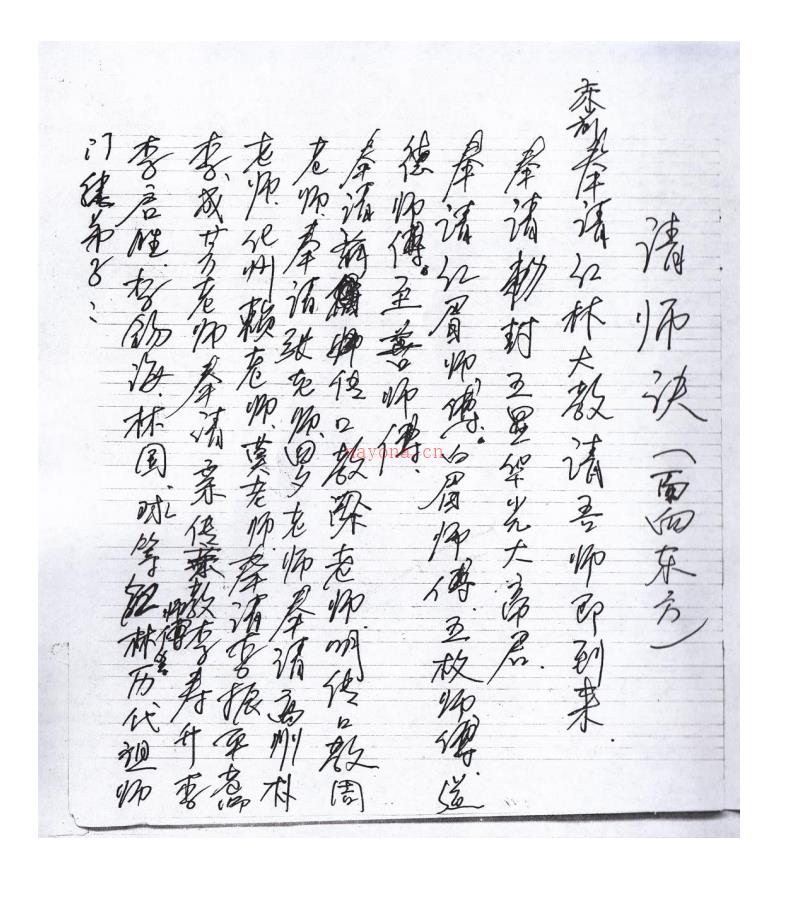 请师诀（面向东方）
奉请红林大教请吾师即到来.
奉请勅封五显华光大帝君.
奉请红眉师傅。白眉师傅.五枚师傅.道
德师傅。至善师傅.
奉请 师传口教梁老师.明传口教周
老师.奉请张老师.罗老师奉请高州林
老师.化州赖老师.莫老师.奉请李振平
李成芳老师奉请亲传 教李寿升李
师傅
李启胜.李锡海.林国球等红林历代祖师
门徒弟子:
nayona.cn